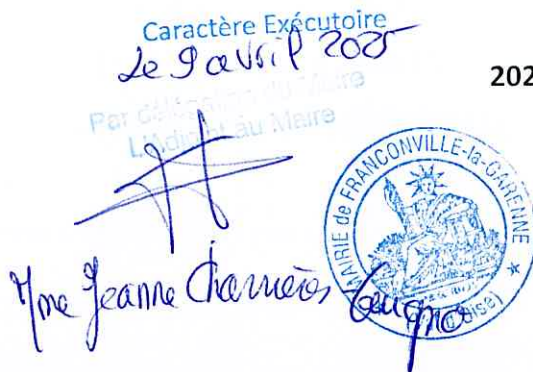 Caractère Exécutoire
Le 9 avril 2025
202
Par délégation du Maire
L'Adjoint au Maire
MAIRIE de FRANCONVILLE-la-GARENNE ★
Mme Jeanne